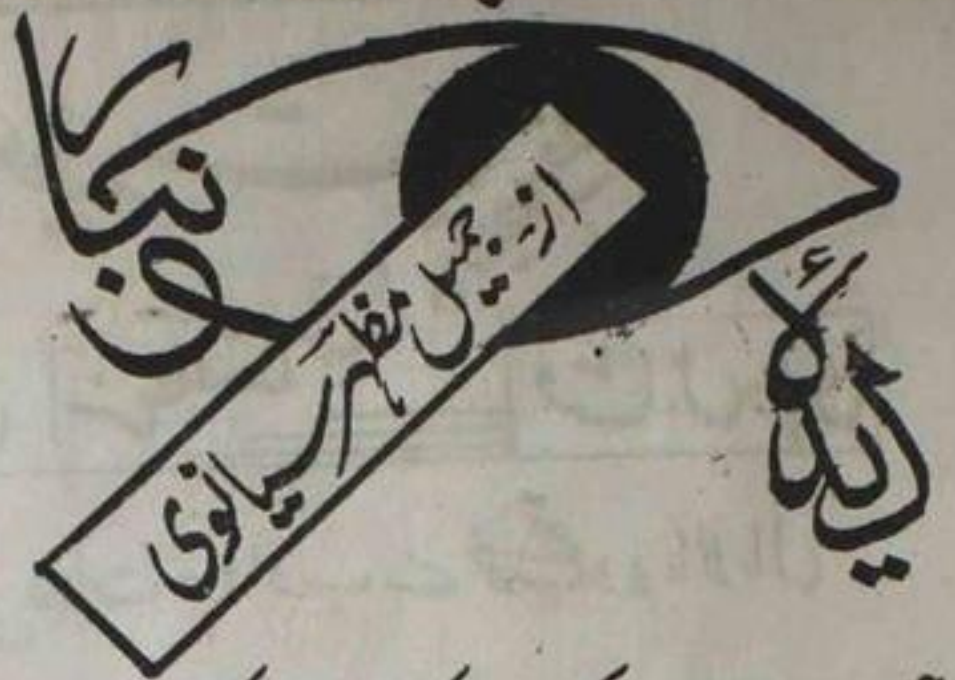 دیدۂ خونبار
از:۔ جمیل مظہر سیانوی